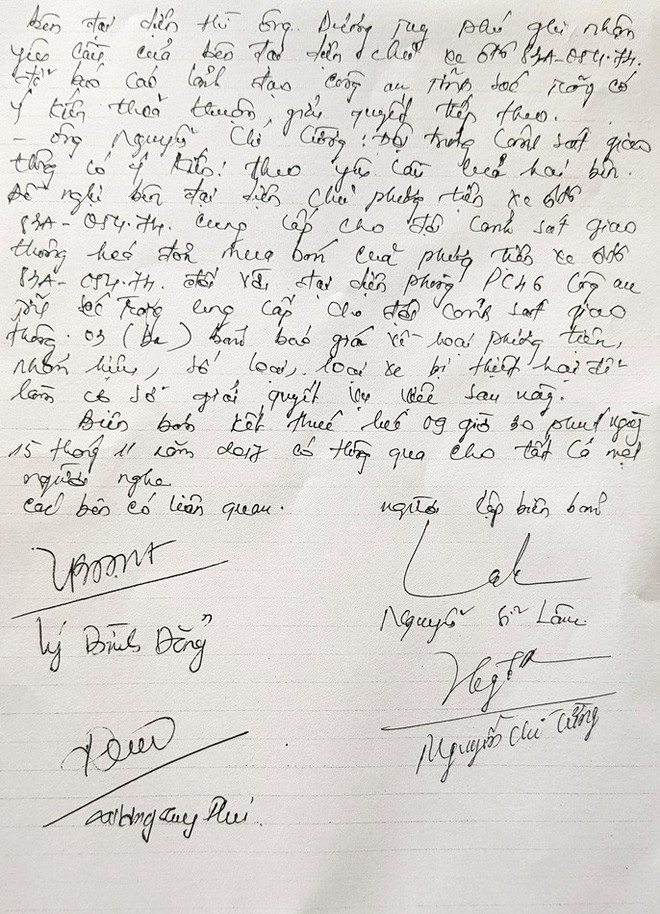 bên đại diện thì ông Dương Duy Phú ghi nhận
yêu cầu của bên đại diện chủ xe ôtô 83A-054.74.
để báo cáo lãnh đạo công an tỉnh Sóc Trăng có
ý kiến thoả thuận, giải quyết tiếp theo.
- ông Nguyễn Chí Cường: Đội trưởng cảnh sát giao
thông có ý kiến: theo yêu cầu của hai bên.
Đề nghị bên đại diện chủ phương tiện xe ôtô
83A-054.74. cung cấp cho đội cảnh sát giao
thông hoá đơn mua bán của phương tiện xe ôtô
83A-054.74. đối với đại diện phòng PC46 Công an
tỉnh Sóc Trăng cung cấp cho đội cảnh sát giao
thông 03 (ba) bảng báo giá về loại phương tiện,
nhãn hiệu, số loại, loại xe bị thiệt hại để
làm cơ sở giải quyết vụ việc sau này.
Biên bản kết thúc lúc 09 giờ 30 phút ngày
15 tháng 11 năm 2017 có thông qua cho tất cả mọi
người nghe
các bên có liên quan.
người lập biên bản
Lý Bình Đẳng
Nguyễn Lâm
Nguyễn Chí Cường
Dương Duy Phú.